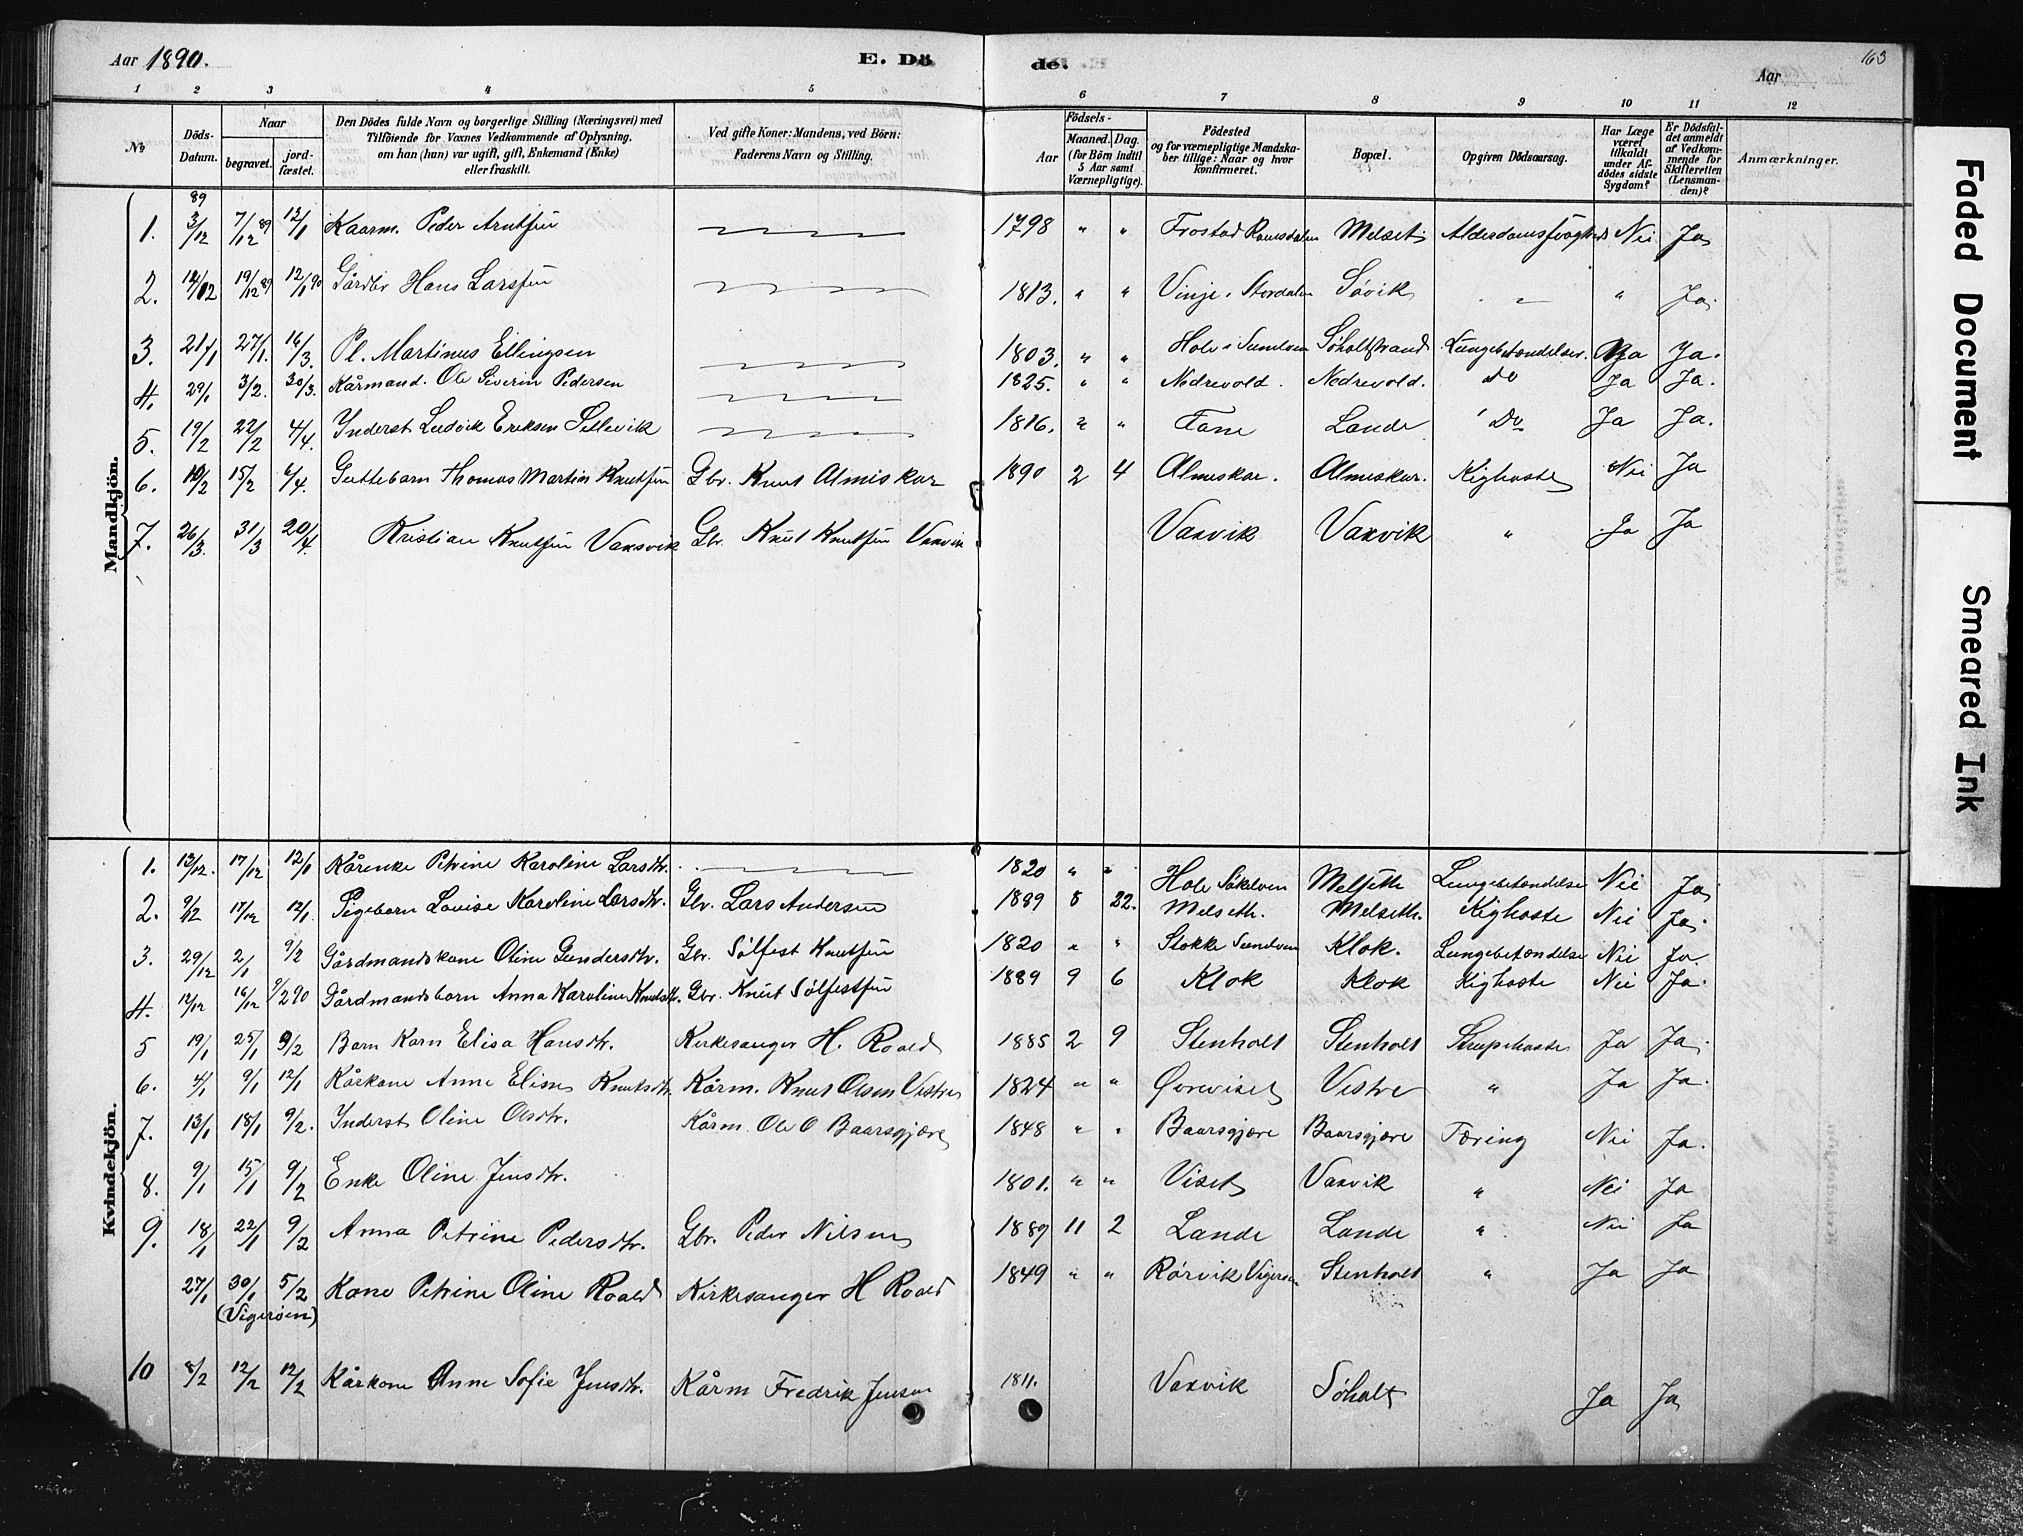 Aar 1890.
E. Dö de.
Aar
163
1 2 3 4 5 6 7 8 9 10 11 12
No
Döds-Datum.
Naar
begravet.
jord-fæstet.
Den Dödes fulde Navn og borgerlige Stilling (Næringsvei) med Tilföiende for Voxnes Vedkommende af Oplysning, om han (hun) var ugift, gift, Enkemand (Enke) eller fraskilt.
Ved gifte Koner: Mandens, ved Börn: Faderens Navn og Stilling.
Födsels-
Aar
Maaned. Dag.
(for Börn indtil 5 Aar samt Værnepligtige).
Födested
og for værnepligtige Mandska-ber tillige: Naar og hvor konfirmeret.
Bopæl.
Opgiven Dödsaarsag.
Har Læge været tilkaldt under Af-dödes sidste Sygdom?
Er Dödsfal-det anmeldt af Vedkom-mende for Skifteretten (Lensman-den)?
Anmærkninger.
Mandkjön.
89
1. 3/12 7/12 89 12/1 Kaarm. Peder Arntsen 1798 " " Frostad Romsdalen Melset Alderdomssvaghed Nei Ja
2. 14/12 19/12 89 12/1 90 Gårdbr Hans Larsen 1813. " " Vinje i Stordalen Søvik " " Ja.
3. 21/1 27/1. 16/3. Pl. Martinus Ellingsen 1803. " " Hole i Sundven Søholtstrand Lungebetændelse. Ja Ja.
4. 29/1 3/2. 30/3. Kårmand. Ole Siverin Pedersen 1825. " " Nedrevold. Nedrevold. Do Ja Ja.
5. 19/2 22/2 4/4. Inderst Ludvik Eriksen Sellevik 1816. " " Fane Lande Do Ja Ja.
6. 10/2 15/2 6/4. Guttebarn Thomas Martin Knutsen Gbr. Knut Almeskar 1890 2 4 Almeskar. Almeskar. Kighoste Nei Ja
7. 26/3. 31/3 20/4. Kristian Knutsen Vaxsvik Gbr. Knut Knutsen Vaxvik Vaxvik Vaxvik " Ja Ja
Kvindekjön.
1. 13/12. 17/12 12/1 Kårenke Petrine Karoline Larsdtr. 1820 " " Hole Søkelven Melseth Lungebetændelse Nei Ja
2. 9/12 17/12 12/1. Pigebarn Lovise Karoline Larsdtr. Gbr. Lars Andersen 1889 8 22. Melseth. Melseth. Kighoste Nei Ja.
3. 29/12 2/1 9/2 Gårdmandskone Oline Gundersdtr. Gbr. Sølfest Knutsen 1820 " " Stokke Sundven Klok. Lungebetændelse Nei Ja
4. 12/12 16/12 9/2 90 Gårdmandsbarn Anna Karoline Knutsdtr. Gbr. Knut Sølfestsen 1889 9 6 Klok Klok Kighoste Nei Ja.
5 19/1 25/1 9/2 Barn Karn Elisa Hansdtr. Kirkesanger H. Roald 1885 2 9 Stenholt Stenholt Strupehoste Ja Ja.
6. 4/1 9/1 12/1 Kårkone Anne Elisne Knutsdtr. Kårm. Knut Olsen Vestre 1824 " " Øvreviset Vestre " Ja Ja.
7. 13/1 18/1 9/2. Inderst Oline Olsdtr. Kårm. Ole O Baarsgjære 1848 " " Baarsgjære Baarsgjære Tæring Nei Ja.
8. 9/1 15/1 9/2 Enke Oline Jensdtr. 1801. " " Viset Vaxvik " Nei Ja
9. 18/1 22/1 9/2 Anna Petrine Pedersdtr. Gbr. Peder Nilsen 1889 11 2 Lande Lande " Nei Ja
27/1 30/1 5/2 Kone Petrine Oline Roald Kirkesanger H Roald 1849 " " Rørvik Vigerøen Stenholt " Ja Ja
(Vigerøen)
10 8/2 12/2 12/2 Kårkone Anne Sofie Jensdtr. Kårm Fredrik Jensen 1811. Vaxvik Søholt Ja Ja
Faded Document
Smeared Ink